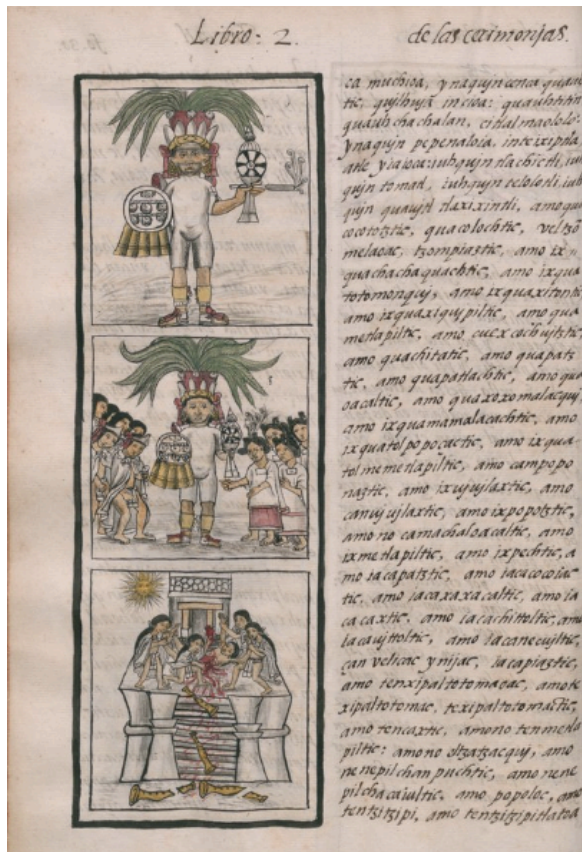 Libro: 2.
de las cerimonjas.
ca muchioa, ynaquin cenca quauh
tic, quilhuja in cioa: quauhtiti
quauhchachalan, citlalmaololo:
ynaqujn pepenaloia, inteixiptla,
atle yiaioca: iuhqujn tlachictli, iuh
qujn tomatl, iuhqujn telolotli, iuh
qujn quavitl tlaxixintli, amo qua
cocototztic, quacolochtic, vel tzõ
melaoac, tzompiaztic, amo ix
quachachaquachtic, amo ixqua
totomonquj, amo ixquaxitontic
amo ixquaxiqujpiltic, amo qua
metlapiltic, amo cuexcochujtztic,
amo quachitatic, amo quapatz
tic, amo quapatlachtic, amo qua
oacaltic, amo quaxoxomalacquj,
amo ixquamamalacachtic, amo
ixquatolpopocactic, amo ixqua
tolmemetlapiltic, amo campopo
naztic, amo ixujujlaxtic, amo
canvjvjlaxtic, amo ixpopotztic,
amo no camachaloacaltic, amo
ixmetlapiltic, amo ixpechtic, a
mo iacapatztic, amo iacacocoiac
tic, amo iacaxaxacaltic, amo ia
cacaxtic, amo iacachittoltic, amo
iacavittoltic, amo iacanecujltic,
çan velicac ynijac, iacapiaztic,
amo tenxipaltotomaoac, amo te
xipaltotomac, texipaltotomactic,
amo tencaxtic, amono tenmetla
piltic: amono eltzatzacquj, amo
nenepilchanpuchtic, amo nene
pilchacaialtic, amo popoloc, amo
tentzitzipi, amo tentzitzipitlatoa